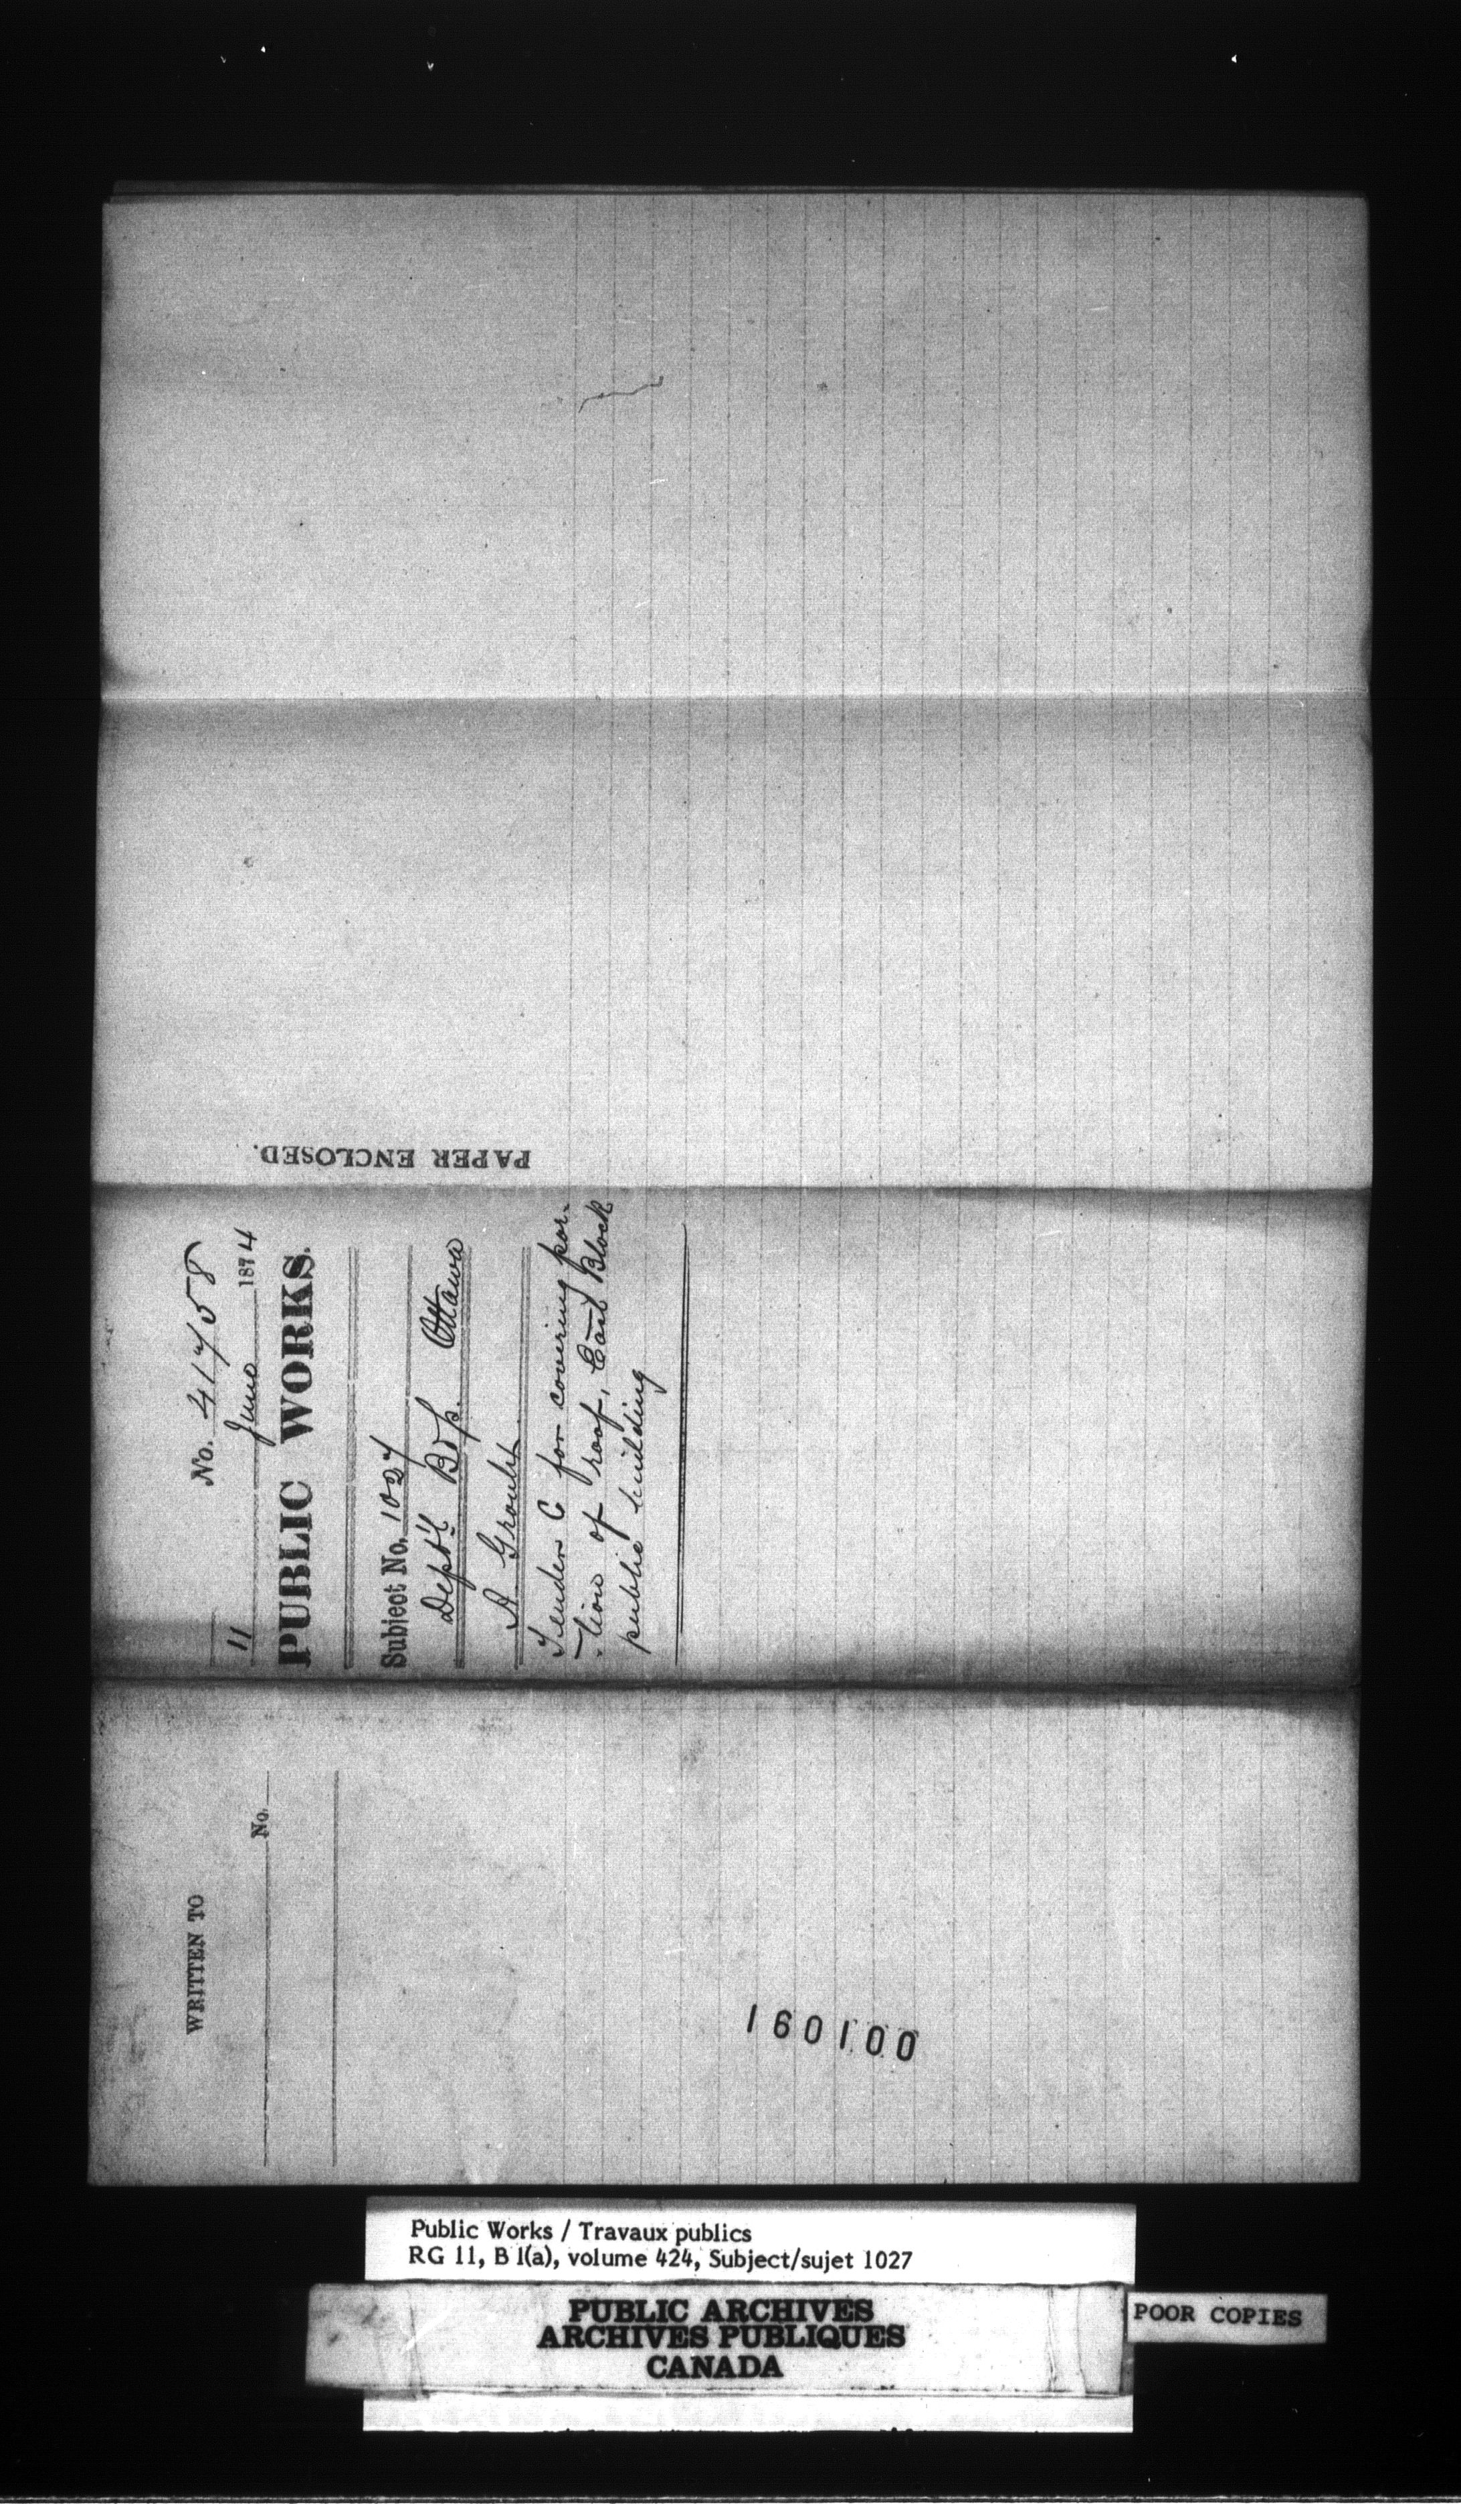 PAPER ENCLOSED.
No. 41758
11 June 1874
PUBLIC WORKS.
Subject No. 1027
Dept'l Bdgs. Ottawa
A Groulx
Tender C for covering por-
-tion of roof, East Block
public building
WRITTEN TO
No.
160100
Public Works / Travaux publics
RG 11, B 1(a), volume 424, Subject/sujet 1027
PUBLIC ARCHIVES
ARCHIVES PUBLIQUES
CANADA
POOR COPIES